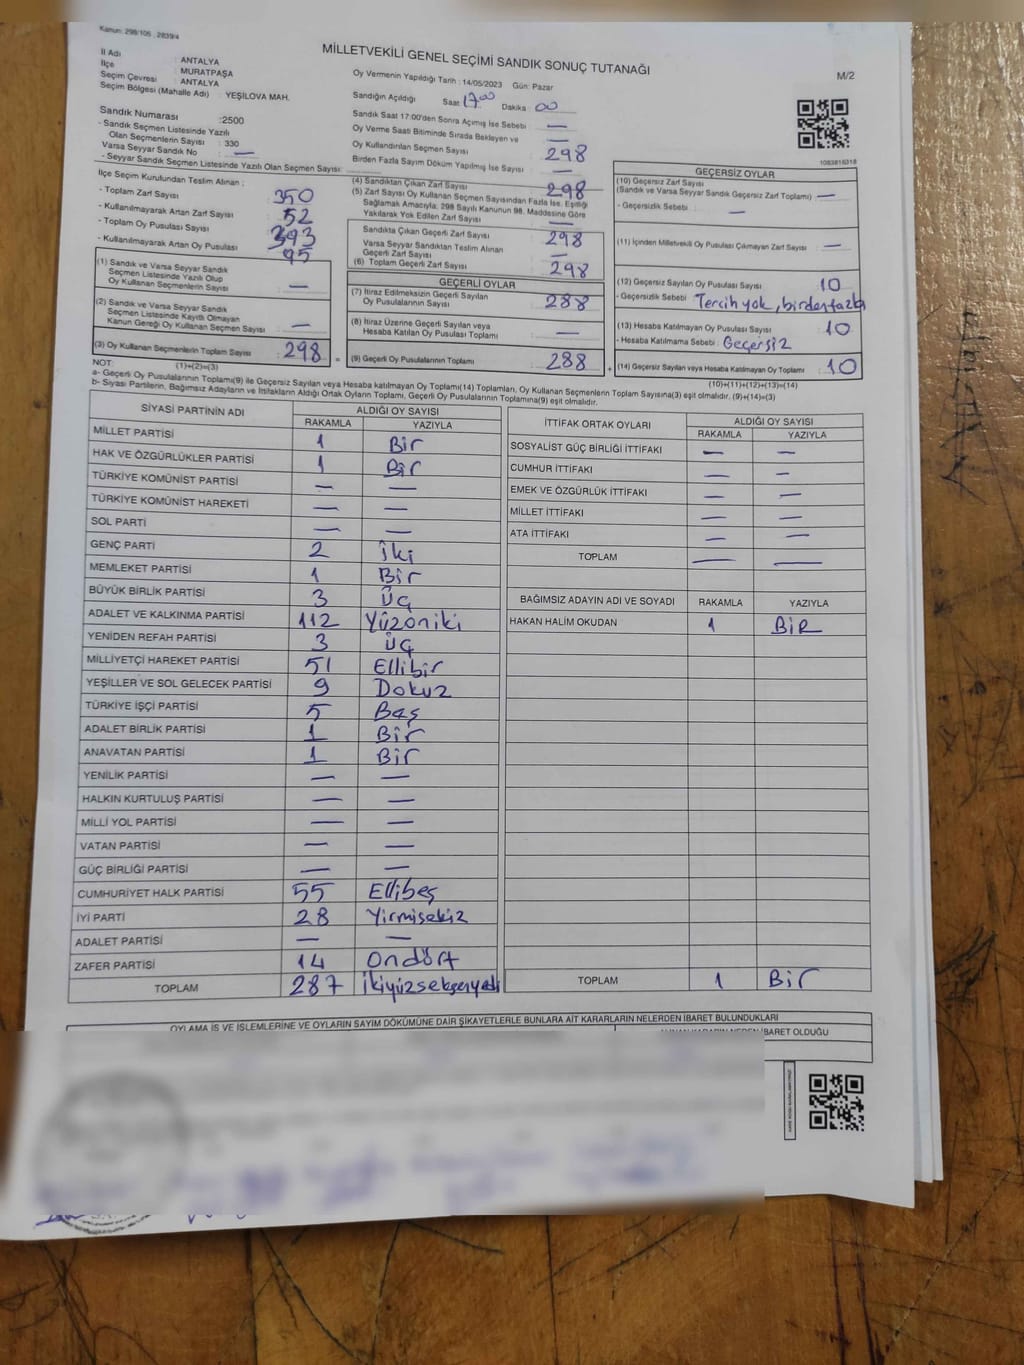 Kanun: 298/105 , 2839/4
MİLLETVEKİLİ GENEL SEÇİMİ SANDIK SONUÇ TUTANAĞI
M/2
İl Adı : ANTALYA
İlçe : MURATPAŞA
Seçim Çevresi : ANTALYA
Seçim Bölgesi (Mahalle Adı) : YEŞİLOVA MAH.
Sandık Numarası :2500
- Sandık Seçmen Listesinde Yazılı
Olan Seçmenlerin Sayısı : 330
Varsa Seyyar Sandık No : —
- Seyyar Sandık Seçmen Listesinde Yazılı Olan Seçmen Sayısı:
Oy Vermenin Yapıldığı Tarih : 14/05/2023 Gün: Pazar
Sandığın Açıldığı Saat : 17.00 Dakika : 00
Sandık Saat 17:00'den Sonra Açmış İse Sebebi : —
Oy Verme Saati Bitiminde Sırada Bekleyen ve : —
Oy Kullandırılan Seçmen Sayısı : 298
Birden Fazla Sayım Döküm Yapılmış İse Sayısı : —
1083816318
İlçe Seçim Kurulundan Teslim Alınan ;
- Toplam Zarf Sayısı : 350
- Kullanılmayarak Artan Zarf Sayısı : 52
- Toplam Oy Pusulası Sayısı : 393
- Kullanılmayarak Artan Oy Pusulası : 95
(1) Sandık ve Varsa Seyyar Sandık
Seçmen Listesinde Yazılı Olup
Oy Kullanan Seçmenlerin Sayısı : —
(2) Sandık ve Varsa Seyyar Sandık
Seçmen Listesinde Kayıtlı Olmayan
Kanun Gereği Oy Kullanan Seçmen Sayısı : —
(3) Oy Kullanan Seçmenlerin Toplam Sayısı : 298
(1)+(2)=(3)
(4) Sandıktan Çıkan Zarf Sayısı : 298
(5) Zarf Sayısı Oy Kullanan Seçmen Sayısından Fazla İse, Eşitliği
Sağlamak Amacıyla; 298 Sayılı Kanunun 98. Maddesine Göre
Yakılarak Yok Edilen Zarf Sayısı : —
Sandıkta Çıkan Geçerli Zarf Sayısı : 298
Varsa Seyyar Sandıktan Teslim Alınan
Geçerli Zarf Sayısı : —
(6) Toplam Geçerli Zarf Sayısı : 298
GEÇERLİ OYLAR
(7) İtiraz Edilmeksizin Geçerli Sayılan
Oy Pusulalarının Sayısı : 288
(8) İtiraz Üzerine Geçerli Sayılan veya
Hesaba Katılan Oy Pusulası Toplamı : —
= (9) Geçerli Oy Pusulalarının Toplamı : 288
GEÇERSİZ OYLAR
(10) Geçersiz Zarf Sayısı
(Sandık ve Varsa Seyyar Sandık Geçersiz Zarf Toplamı) : —
- Geçersizlik Sebebi : —
(11) İçinden Milletvekili Oy Pusulası Çıkmayan Zarf Sayısı : —
(12) Geçersiz Sayılan Oy Pusulası Sayısı : 10
- Geçersizlik Sebebi : Tercih yok, birden fazla
(13) Hesaba Katılmayan Oy Pusulası Sayısı : 10
- Hesaba Katılmama Sebebi : Geçersiz
+ (14) Geçersiz Sayılan veya Hesaba Katılmayan Oy Toplamı : 10
(10)+(11)+(12)+(13)=(14)
NOT:
a- Geçerli Oy Pusulalarının Toplamı(9) ile Geçersiz Sayılan veya Hesaba katılmayan Oy Toplamı(14) Toplamları, Oy Kullanan Seçmenlerin Toplam Sayısına(3) eşit olmalıdır. (9)+(14)=(3)
b- Siyasi Partilerin, Bağımsız Adayların ve İttifakların Aldığı Ortak Oyların Toplamı, Geçerli Oy Pusulalarının Toplamına(9) eşit olmalıdır.
SİYASİ PARTİNİN ADI ALDIĞI OY SAYISI
RAKAMLA YAZIYLA
MİLLET PARTİSİ 1 Bir
HAK VE ÖZGÜRLÜKLER PARTİSİ 1 Bir
TÜRKİYE KOMÜNİST PARTİSİ — —
TÜRKİYE KOMÜNİST HAREKETİ — —
SOL PARTİ — —
GENÇ PARTİ 2 İki
MEMLEKET PARTİSİ 1 Bir
BÜYÜK BİRLİK PARTİSİ 3 Üç
ADALET VE KALKINMA PARTİSİ 112 Yüzoniki
YENİDEN REFAH PARTİSİ 3 Üç
MİLLİYETÇİ HAREKET PARTİSİ 51 Ellibir
YEŞİLLER VE SOL GELECEK PARTİSİ 9 Dokuz
TÜRKİYE İŞÇİ PARTİSİ 5 Baş
ADALET BİRLİK PARTİSİ 1 Bir
ANAVATAN PARTİSİ 1 Bir
YENİLİK PARTİSİ — —
HALKIN KURTULUŞ PARTİSİ — —
MİLLİ YOL PARTİSİ — —
VATAN PARTİSİ — —
GÜÇ BİRLİĞİ PARTİSİ — —
CUMHURİYET HALK PARTİSİ 55 Ellibeş
İYİ PARTİ 28 Yirmisekiz
ADALET PARTİSİ — —
ZAFER PARTİSİ 14 Ondört
TOPLAM 287 İkiyüzseksenyedi
İTTİFAK ORTAK OYLARI ALDIĞI OY SAYISI
RAKAMLA YAZIYLA
SOSYALİST GÜÇ BİRLİĞİ İTTİFAKI — —
CUMHUR İTTİFAKI — —
EMEK VE ÖZGÜRLÜK İTTİFAKI — —
MİLLET İTTİFAKI — —
ATA İTTİFAKI — —
TOPLAM — —
BAĞIMSIZ ADAYIN ADI VE SOYADI RAKAMLA YAZIYLA
HAKAN HALİM OKUDAN 1 BİR
TOPLAM 1 Bir
OYLAMA İŞ VE İŞLEMLERİNE VE OYLARIN SAYIM DÖKÜMÜNE DAİR ŞİKAYETLERLE BUNLARA AİT KARARLARIN NELERDEN İBARET BULUNDUKLARI
NEDEN İBARET OLDUĞU